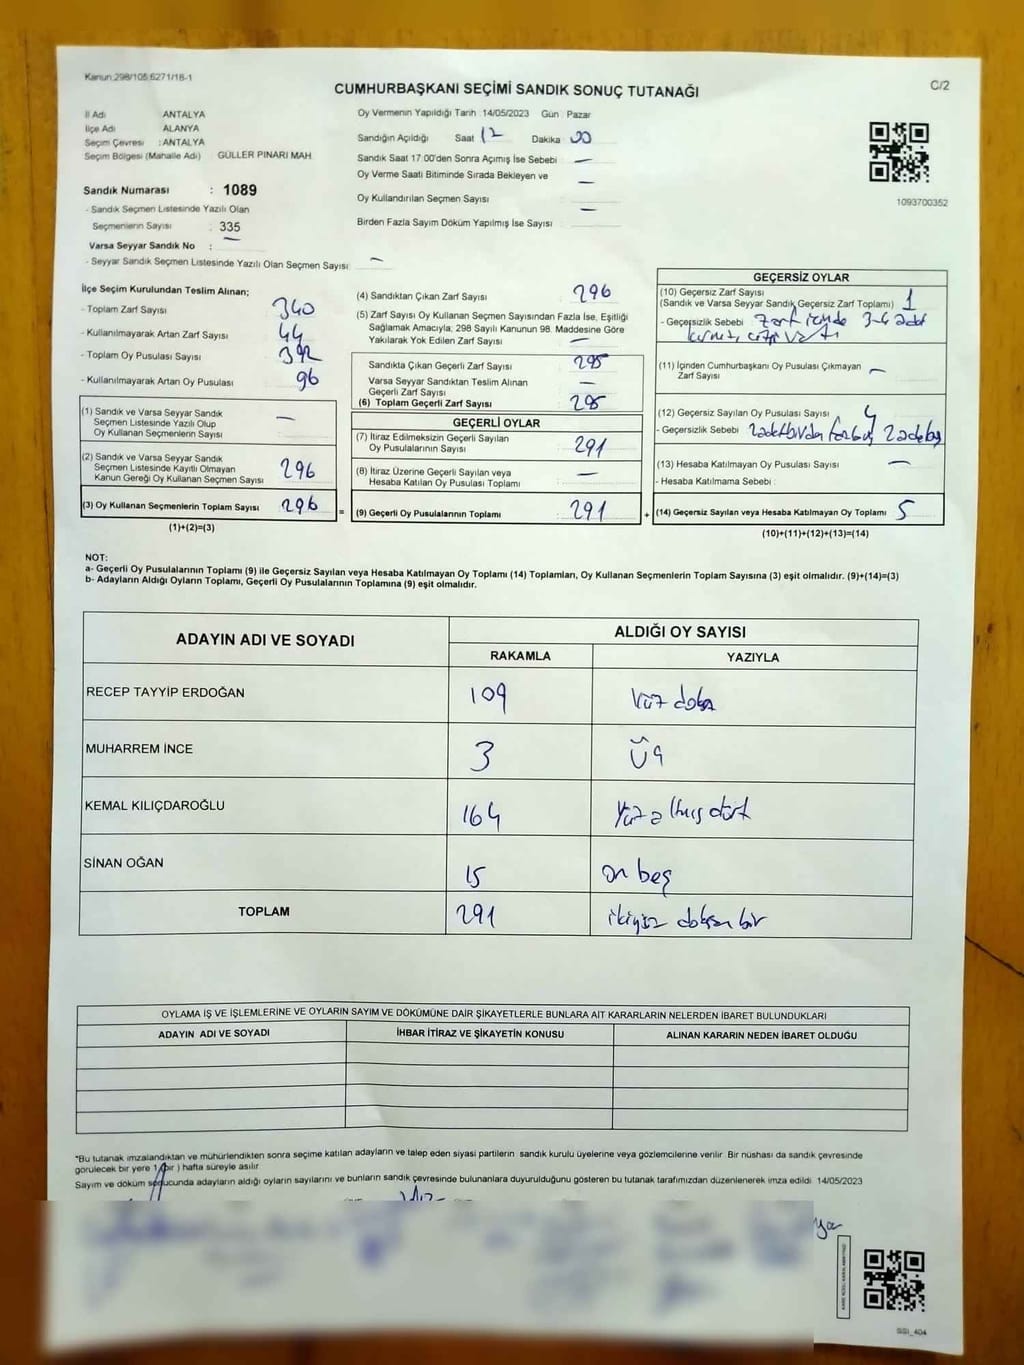 Kanun:298/105;6271/18-1
C/2
CUMHURBAŞKANI SEÇİMİ SANDIK SONUÇ TUTANAĞI
İl Adı ANTALYA
İlçe Adı ALANYA
Seçim Çevresi : ANTALYA
Seçim Bölgesi (Mahalle Adı) GÜLLER PINARI MAH
Sandık Numarası : 1089
- Sandık Seçmen Listesinde Yazılı Olan
Seçmenlerin Sayısı : 335
Varsa Seyyar Sandık No : —
- Seyyar Sandık Seçmen Listesinde Yazılı Olan Seçmen Sayısı: —
Oy Vermenin Yapıldığı Tarih : 14/05/2023 Gün : Pazar
Sandığın Açıldığı Saat 12 Dakika 00
Sandık Saat 17:00'den Sonra Açımış İse Sebebi —
Oy Verme Saati Bitiminde Sırada Bekleyen ve —
Oy Kullandırılan Seçmen Sayısı —
Birden Fazla Sayım Döküm Yapılmış İse Sayısı
1093700352
İlçe Seçim Kurulundan Teslim Alınan;
- Toplam Zarf Sayısı 340
- Kullanılmayarak Artan Zarf Sayısı 44
- Toplam Oy Pusulası Sayısı 392
- Kullanılmayarak Artan Oy Pusulası 96
(1) Sandık ve Varsa Seyyar Sandık
Seçmen Listesinde Yazılı Olup
Oy Kullanan Seçmenlerin Sayısı —
(2) Sandık ve Varsa Seyyar Sandık
Seçmen Listesinde Kayıtlı Olmayan
Kanun Gereği Oy Kullanan Seçmen Sayısı 296
(3) Oy Kullanan Seçmenlerin Toplam Sayısı 296
(1)+(2)=(3)
(4) Sandıktan Çıkan Zarf Sayısı 296
(5) Zarf Sayısı Oy Kullanan Seçmen Sayısından Fazla İse, Eşitliği
Sağlamak Amacıyla, 298 Sayılı Kanunun 98. Maddesine Göre
Yakılarak Yok Edilen Zarf Sayısı —
Sandıkta Çıkan Geçerli Zarf Sayısı 295
Varsa Seyyar Sandıktan Teslim Alınan
Geçerli Zarf Sayısı —
(6) Toplam Geçerli Zarf Sayısı 295
GEÇERLİ OYLAR
(7) İtiraz Edilmeksizin Geçerli Sayılan
Oy Pusulalarının Sayısı 291
(8) İtiraz Üzerine Geçerli Sayılan veya
Hesaba Katılan Oy Pusulası Toplamı —
= (9) Geçerli Oy Pusulalarının Toplamı 291
GEÇERSİZ OYLAR
(10) Geçersiz Zarf Sayısı
(Sandık ve Varsa Seyyar Sandık Geçersiz Zarf Toplamı) 1
- Geçersizlik Sebebi : zarf içinde 3-4 adet
(11) İçinden Cumhurbaşkanı Oy Pusulası Çıkmayan
Zarf Sayısı —
(12) Geçersiz Sayılan Oy Pusulası Sayısı 4
- Geçersizlik Sebebi
(13) Hesaba Katılmayan Oy Pusulası Sayısı —
- Hesaba Katılmama Sebebi :
+ (14) Geçersiz Sayılan veya Hesaba Katılmayan Oy Toplamı 5
(10)+(11)+(12)+(13)=(14)
NOT:
a- Geçerli Oy Pusulalarının Toplamı (9) ile Geçersiz Sayılan veya Hesaba Katılmayan Oy Toplamı (14) Toplamları, Oy Kullanan Seçmenlerin Toplam Sayısına (3) eşit olmalıdır. (9)+(14)=(3)
b- Adayların Aldığı Oyların Toplamı, Geçerli Oy Pusulalarının Toplamına (9) eşit olmalıdır.
ADAYIN ADI VE SOYADI ALDIĞI OY SAYISI
RAKAMLA YAZIYLA
RECEP TAYYİP ERDOĞAN 109 Yüz dokuz
MUHARREM İNCE 3 Üç
KEMAL KILIÇDAROĞLU 164 Yüz altmış dört
SİNAN OĞAN 15 on beş
TOPLAM 291 ikiyüz doksan bir
OYLAMA İŞ VE İŞLEMLERİNE VE OYLARIN SAYIM VE DÖKÜMÜNE DAİR ŞİKAYETLERLE BUNLARA AİT KARARLARIN NELERDEN İBARET BULUNDUKLARI
ADAYIN ADI VE SOYADI İHBAR İTİRAZ VE ŞİKAYETİN KONUSU ALINAN KARARIN NEDEN İBARET OLDUĞU
*Bu tutanak imzalandıktan ve mühürlendikten sonra seçime katılan adayların ve talep eden siyasi partilerin sandık kurulu üyelerine veya gözlemcilerine verilir. Bir nüshası da sandık çevresinde
görülecek bir yere 1 ( bir ) hafta süreyle asılır.
Sayım ve döküm sonucunda adayların aldığı oyların sayılarını ve bunların sandık çevresinde bulunanlara duyurulduğunu gösteren bu tutanak tarafımızdan düzenlenerek imza edildi. 14/05/2023
SSI_404